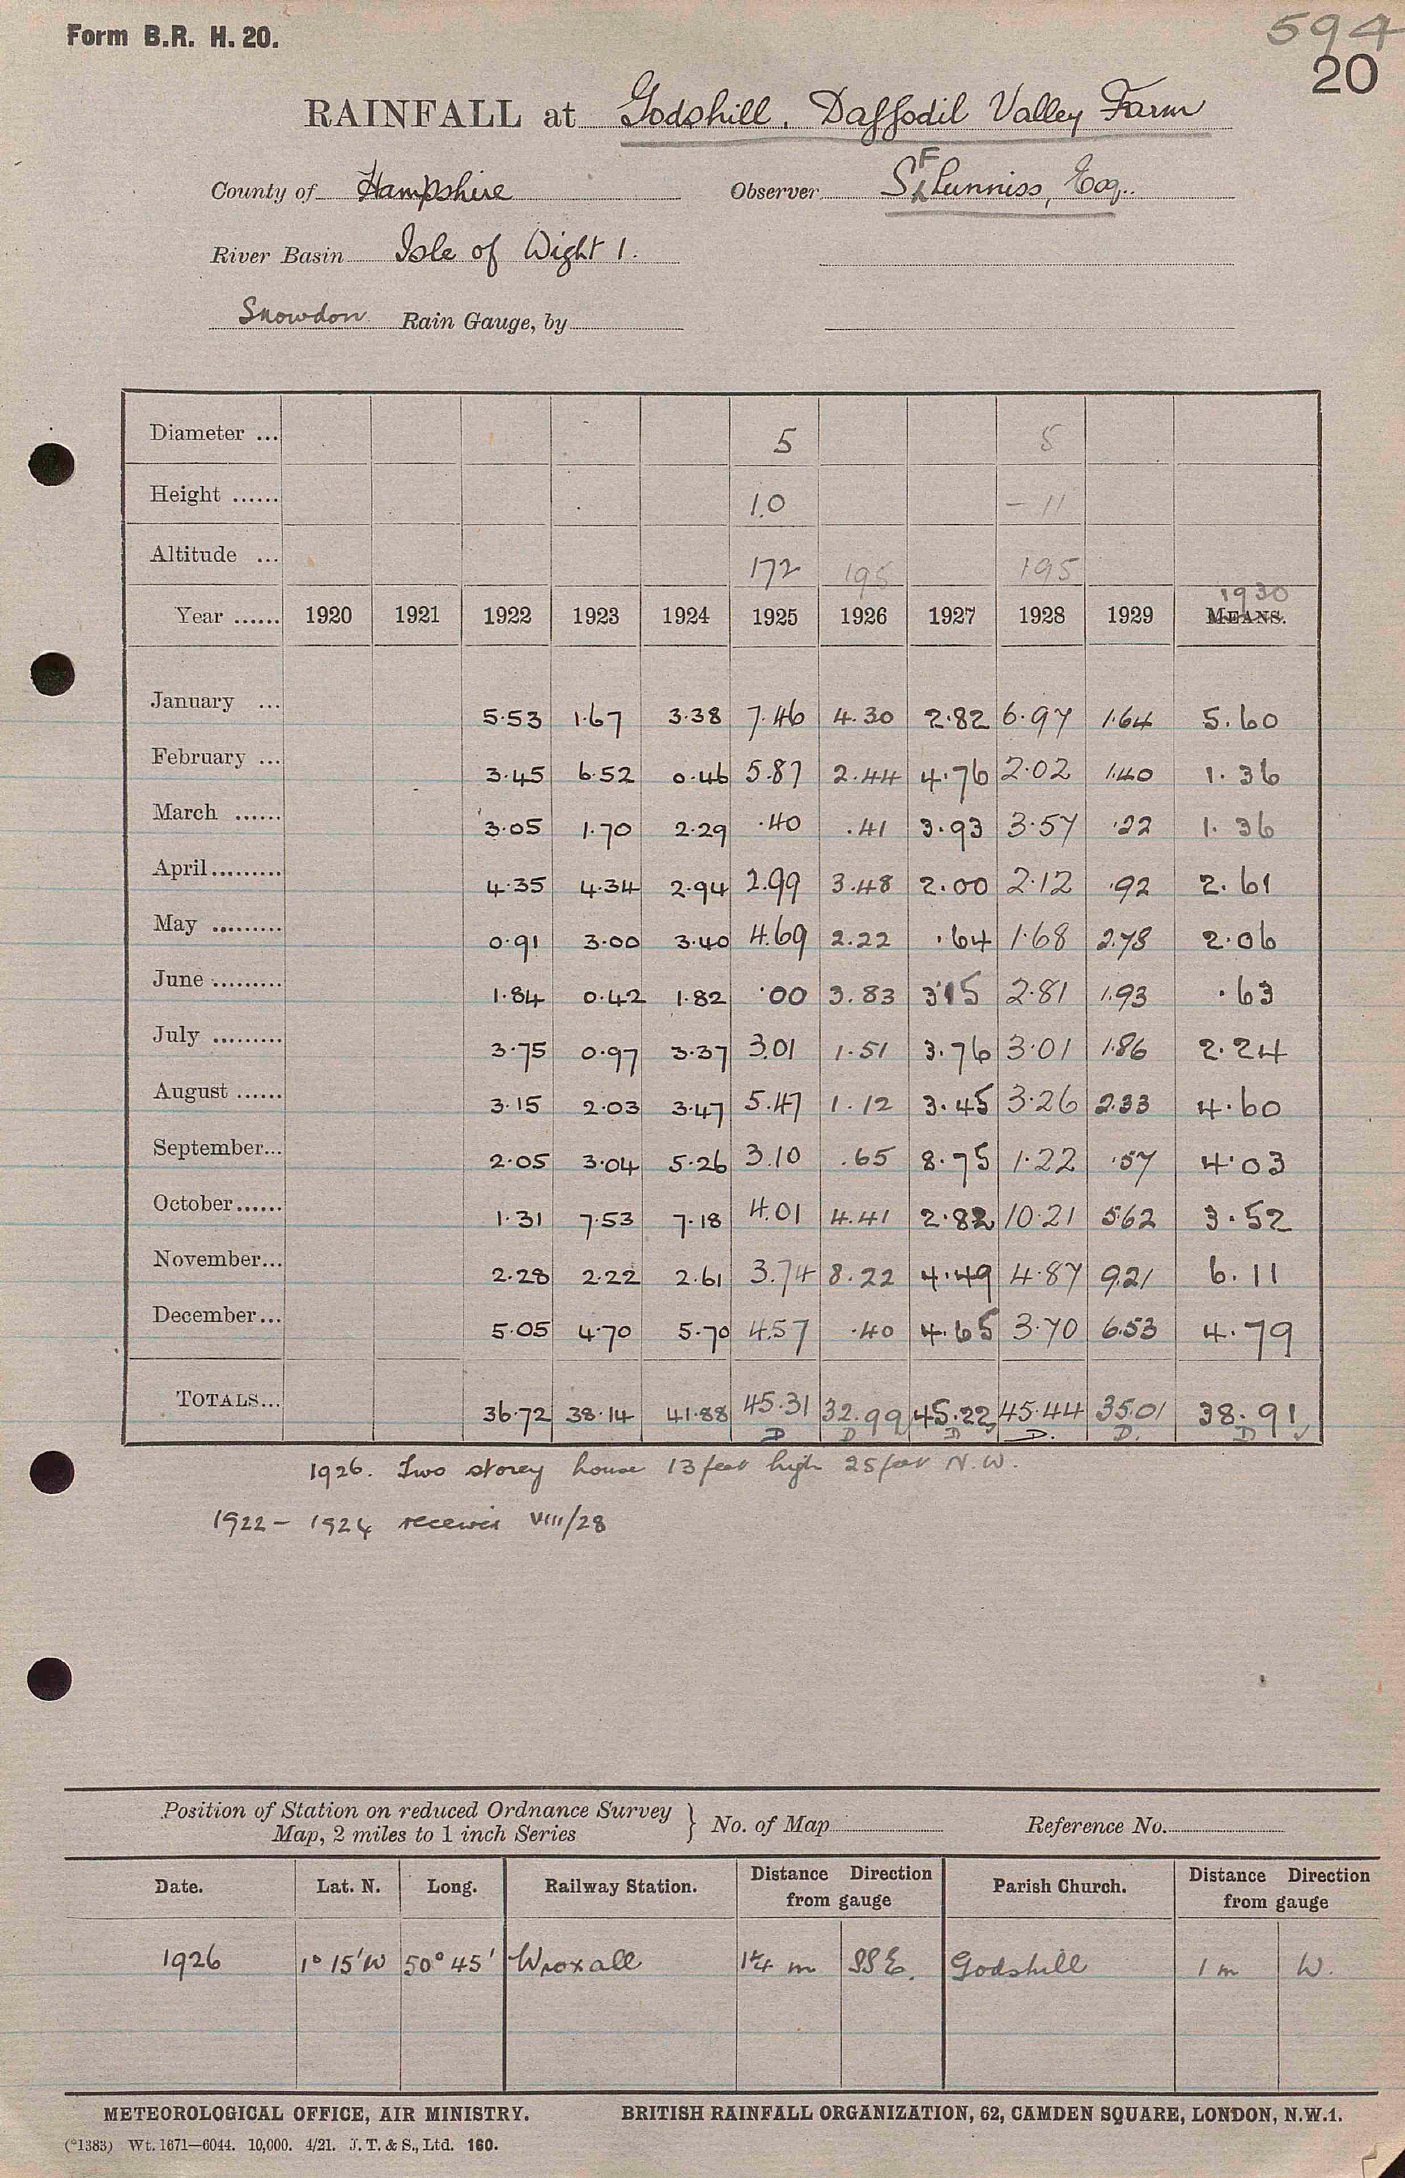 594
Form B.R. H. 20.
20
RAINFALL at Godshill. Daffodil Valley Farm
County of Hampshire Observer S F Lunniss, Esq.
River Basin Isle of Wight 1.
Snowdon Rain Gauge, by
Diameter ... 5 5
Height ...... 1.0 - 11
Altitude ... 172 195 195
1930
Year ...... 1920 1921 1922 1923 1924 1925 1926 1927 1928 1929 MEANS.
January ... 5.53 1.67 3.38 7.46 4.30 2.82 6.97 1.64 5.60
February ... 3.45 6.52 0.46 5.87 2.44 4.76 2.02 1.40 1.36
March ...... 3.05 1.70 2.29 .40 .41 3.93 3.57 .22 1.36
April......... 4.35 4.34 2.94 2.99 3.48 2.00 2.12 .92 2.61
May ......... 0.91 3.00 3.40 4.69 2.22 .64 1.68 2.78 2.06
June ......... 1.84 0.42 1.82 .00 3.83 3.15 2.81 1.93 .63
July ......... 3.75 0.97 3.37 3.01 1.51 3.76 3.01 1.86 2.24
August ...... 3.15 2.03 3.47 5.47 1.12 3.45 3.26 2.33 4.60
September... 2.05 3.04 5.26 3.10 .65 8.75 1.22 .57 4.03
October...... 1.31 7.53 7.18 4.01 4.41 2.82 10.21 5.62 3.52
November... 2.28 2.22 2.61 3.74 8.22 4.49 4.87 9.21 6.11
December... 5.05 4.70 5.70 4.57 .40 4.65 3.70 6.53 4.79
TOTALS... 36.72 38.14 41.88 45.31 32.99 45.22 45.44 35.01 38.91
D D D D. D. D ✓
1926. Two storey house 13 feet high 25 feet N.W.
1922 - 1924 received VIII/28
Position of Station on reduced Ordnance Survey
Map, 2 miles to 1 inch Series } No. of Map Reference No.
Date. Lat. N. Long. Railway Station. Distance Direction from gauge Parish Church. Distance Direction from gauge
1926 1° 15' W 50° 45' Wroxall 1¼ m SSE. Godshill 1 m W.
METEOROLOGICAL OFFICE, AIR MINISTRY. BRITISH RAINFALL ORGANIZATION, 62, CAMDEN SQUARE, LONDON, N.W.1.
(*1383) Wt. 1671—6044. 10,000. 4/21. J. T. & S., Ltd. 160.